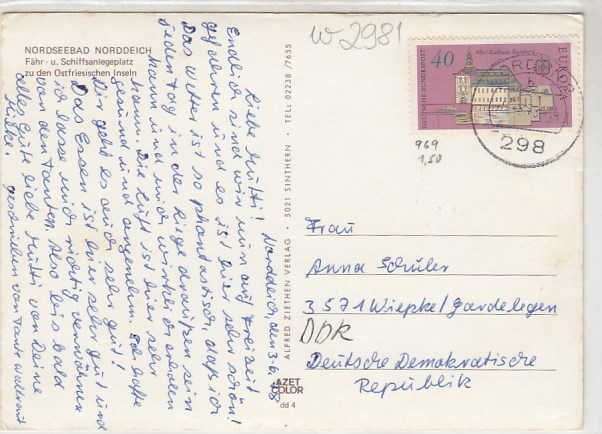 NORDSEEBAD NORDDEICH
Fähr- u. Schiffsanlegeplatz
zu den Ostfriesischen Inseln
Norddeich, den 3.6.78
Liebe Mutti!
Endlich sind wir nun auf Freizeit
gefahren und es ist hier sehr schön!
Das Wetter ist so phantastisch, daß ich
jeden Tag in der Liege draußen sein
kann und mich wirklich erholen
kann. Die Luft ist hier sehr
gesund und angenehm. Ich hoffe
Dir geht es auch sehr gut!
Das Essen ist hier sehr gut und
ich lasse mich richtig verwöhnen
von den Tanten. Also bis bald
alles Gute liebe Mutti von Deine
geschrieben von Tante Waltraut
ALFRED ZIETHEN VERLAG · 5021 SINTHERN · TEL: 02238 /7655
AZET
COLOR
dd 4
W 2981
40
DEUTSCHE BUNDESPOST
Altes Rathaus Bamberg
EUROPA
298
969
1,50
Frau
Anna Schuler
3571 Wiepke/Gardelegen
DDR
Deutsche Demokratische
Republik